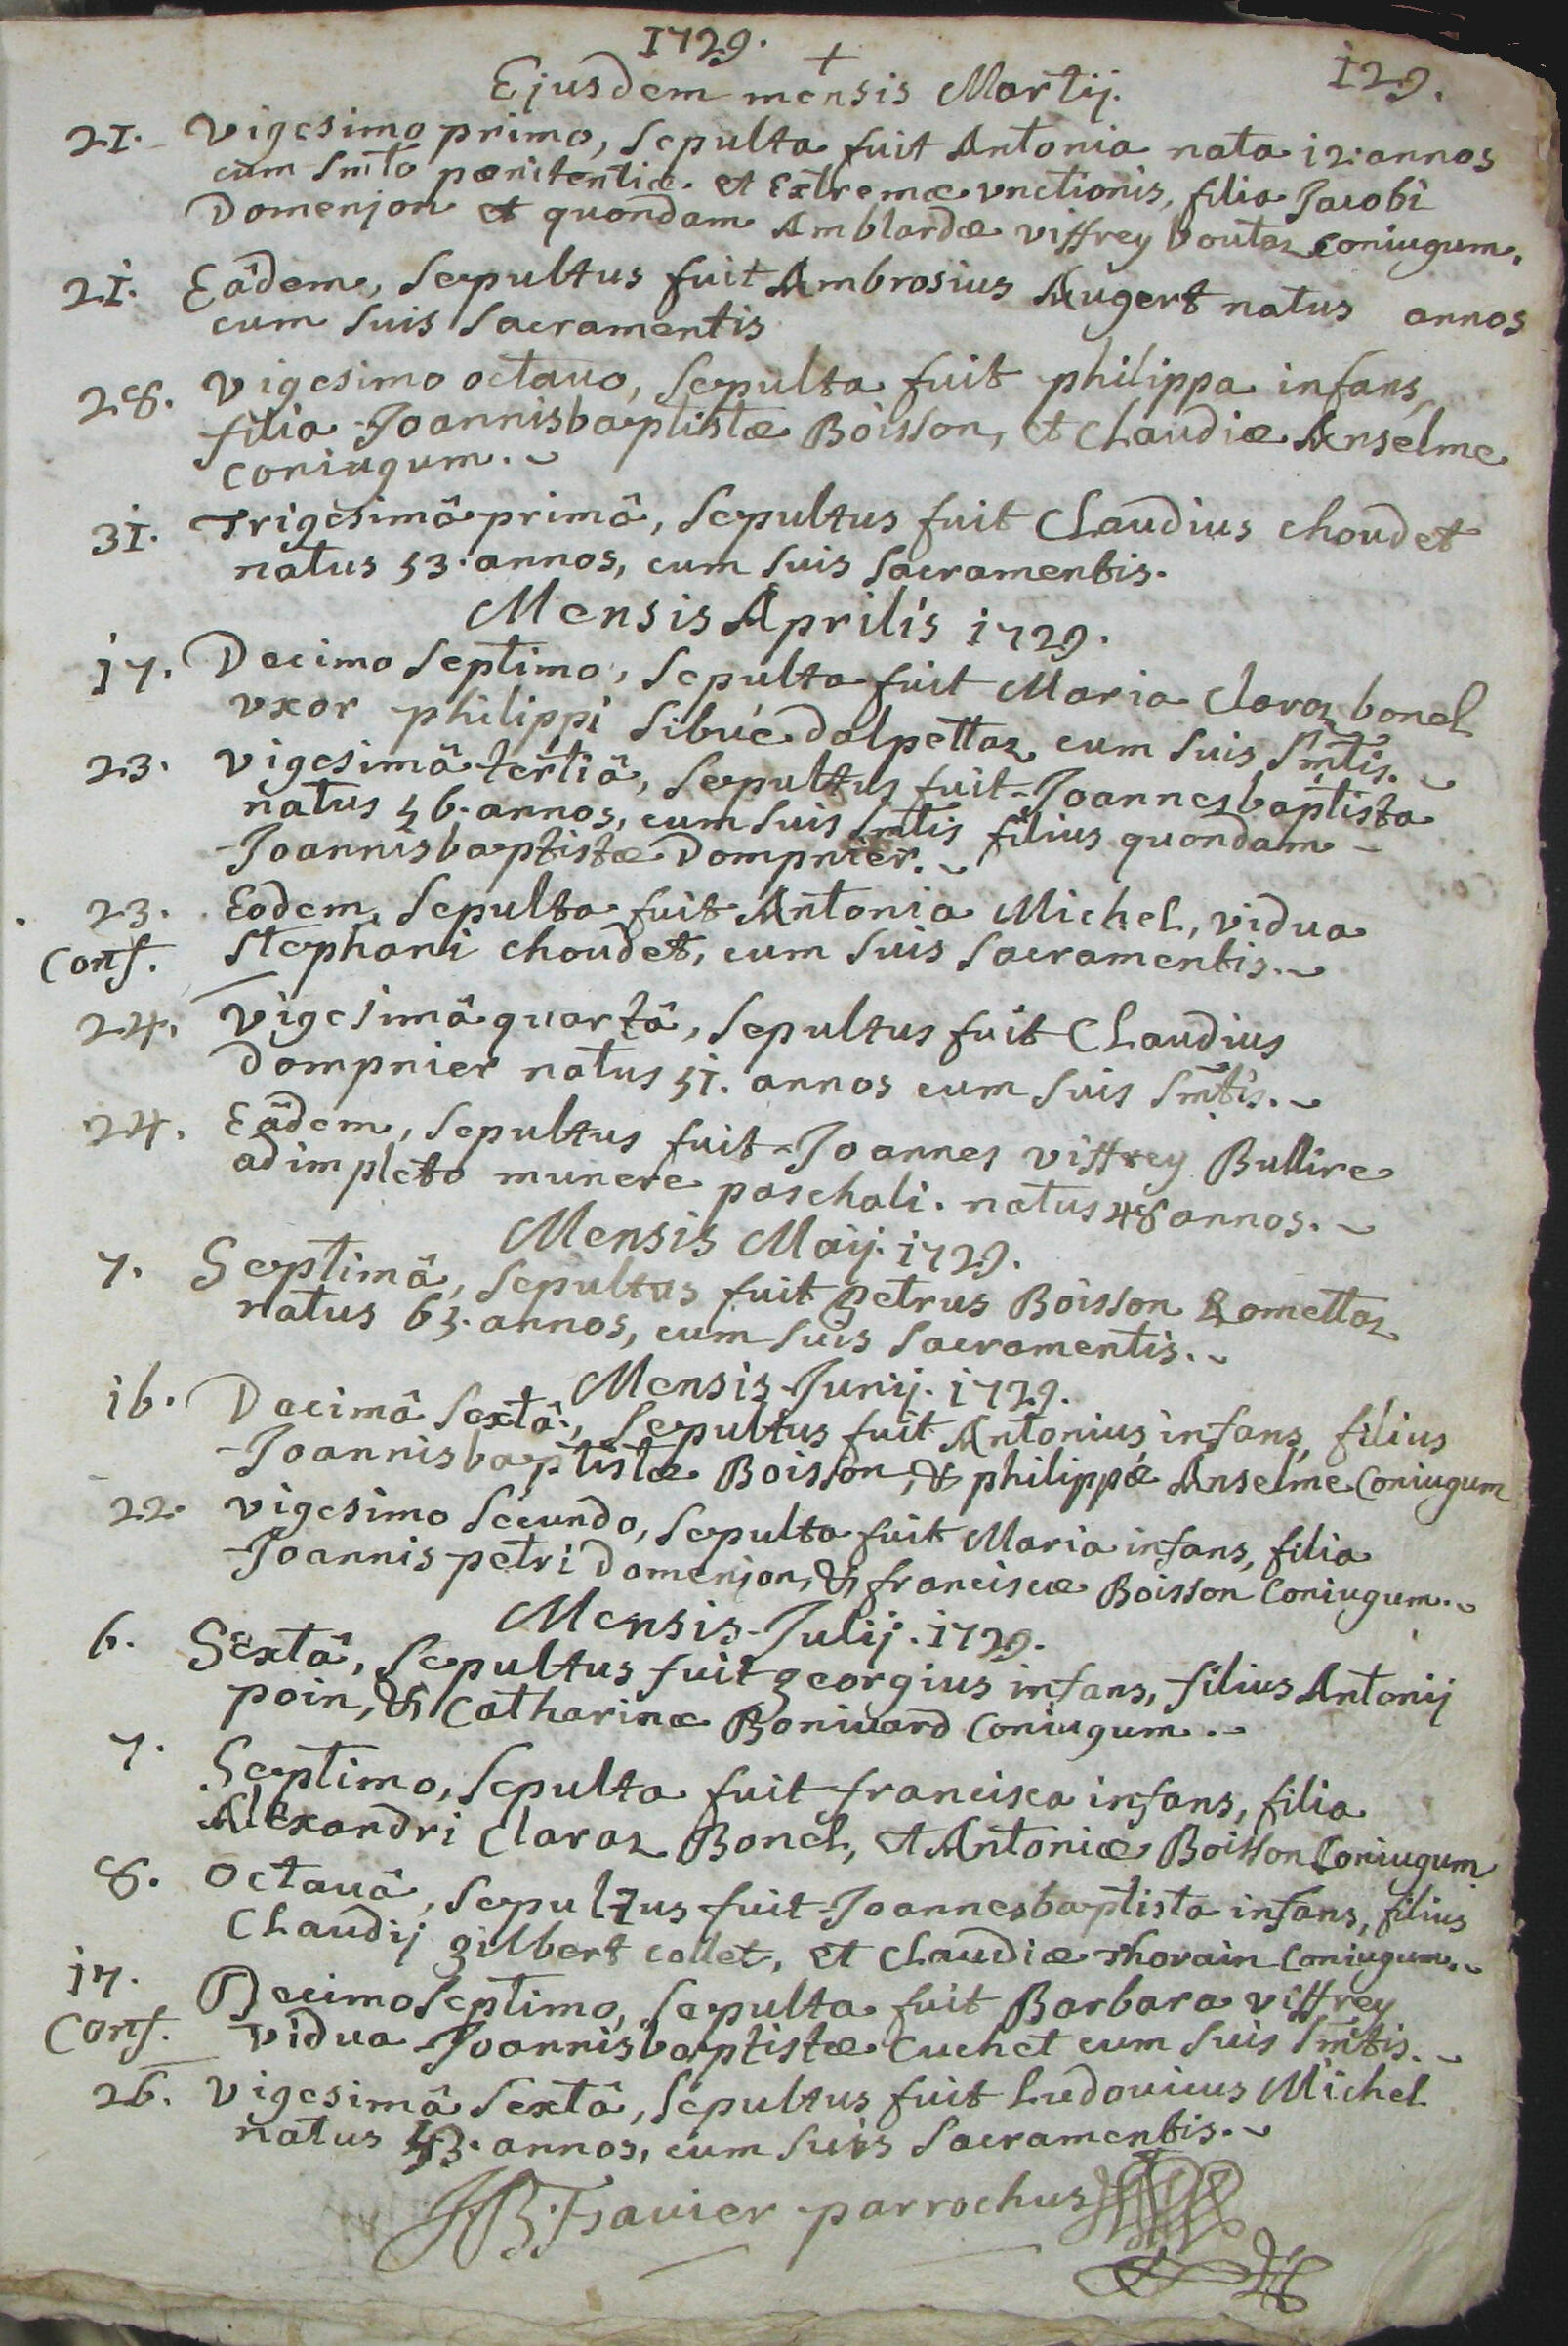 1729. +
129.
Ejusdem mensis Martij.
21. Vigesimo primo, sepulta fuit Antonia nata 12. annos
cum smto pœnitentiæ et Extremæ vnctionis, filia Jacobi
Domenjon et quondam Amblardæ viffrey boutaz coniugum.
21. Eâdem, sepultus fuit Ambrosius Augert natus annos
cum suis sacramentis
28. Vigesimo octauo, sepulta fuit philippa infans,
filia Joannisbaptistæ Boisson, et claudiæ Anselme
coniugum.
31. Trigesimâ primâ, sepultus fuit Claudius choudet
natus 53. annos, cum suis sacramentis.
Mensis Aprilis 1729.
17. Decimo septimo, sepulta fuit Maria claraz bonel
vxor philippi sibué dalpettaz cum suis smtis.
23. Vigesimâ tertiâ, sepultus fuit Joannesbaptista
natus 56. annos, cum suis smtis filius quondam
Joannisbaptistæ Dompnier.
23. Eodem, sepulta fuit Antonia Michel, vidua
Conf. stephani choudet, cum suis sacramentis.
24. Vigesimâ quartâ, sepultus fuit Claudius
dompnier natus 51. annos cum suis smtis.
24. Eâdem, sepultus fuit Joannes viffrey Bullire
adimpleto munere paschali. natus 48 annos.
Mensis Maij. 1729.
7. Septimâ, sepultus fuit petrus Boisson Romettaz
natus 65. annos, cum suis sacramentis.
Mensis Junij. 1729.
16. Decimâ sextâ, sepultus fuit Antonius infans, filius
Joannisbaptistæ Boisson, & philippæ Anselme Coniugum
22. vigesimo secundo, sepulta fuit Maria infans, filia
Joannis petri Domenjon, & franciscæ Boisson Coniugum.
Mensis Julij. 1729.
6. Sextâ, sepultus fuit georgius infans, filius Antonij
poin, & Catharinæ Boniuard coniugum.
7. Septimo, sepulta fuit francisca infans, filia
Alexandri Claraz Bonel, et Antoniæ Boisson Coniugum
8. Octauâ, sepultus fuit Joannesbaptista infans, filius
Claudij gilbert collet, et claudiæ thorain Coniugum.
17. Decimo septimo, sepulta fuit Barbara viffrey
Conf. vidua Joannisbaptistæ Cuchet cum suis smtis.
26. Vigesimâ sextâ, sepultus fuit Ludouicus Michel
natus 43. annos, cum suis sacramentis.
JB Fauier parrochus